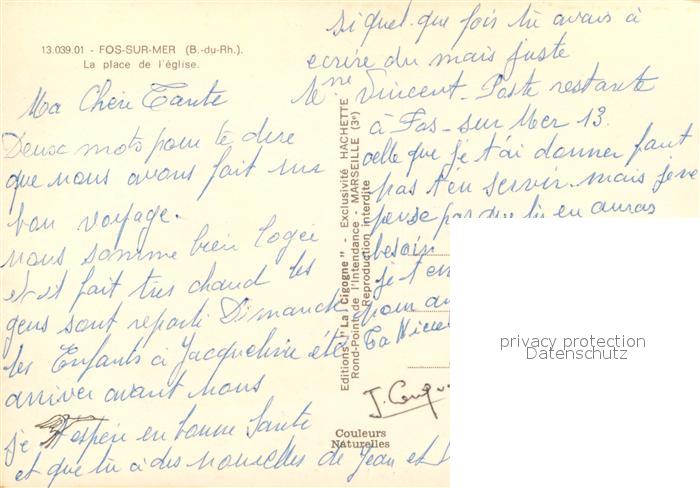 13.039.01 - FOS-SUR-MER (B.-du-Rh.).
La place de l'église.
Ma Chère Tante
Deux mots pour te dire
que nous avons fait un
bon voyage.
nous somme bien logée
et il fait tres chaud les
gens sont reparti Dimanche
les Enfants à Jacqueline été
arriver avant nous
je t'espère en bonne Santé
et que tu à des nouvelles de Jean et
si quel que fois tu avais à
ecrire du mais juste
Vincent - Poste restante
à Fos-sur Mer 13.
celle que je t'ai donner faut
pas t'en servir mais je ne
pense pas que tu en auras
besoin
je t'em
pour
Ta Nièce
Editions "La Cigogne" - Exclusivité HACHETTE
Rond-Point de l'Intendance - MARSEILLE (3e)
Reproduction interdite
Couleurs
Naturelles
privacy protection
Datenschutz